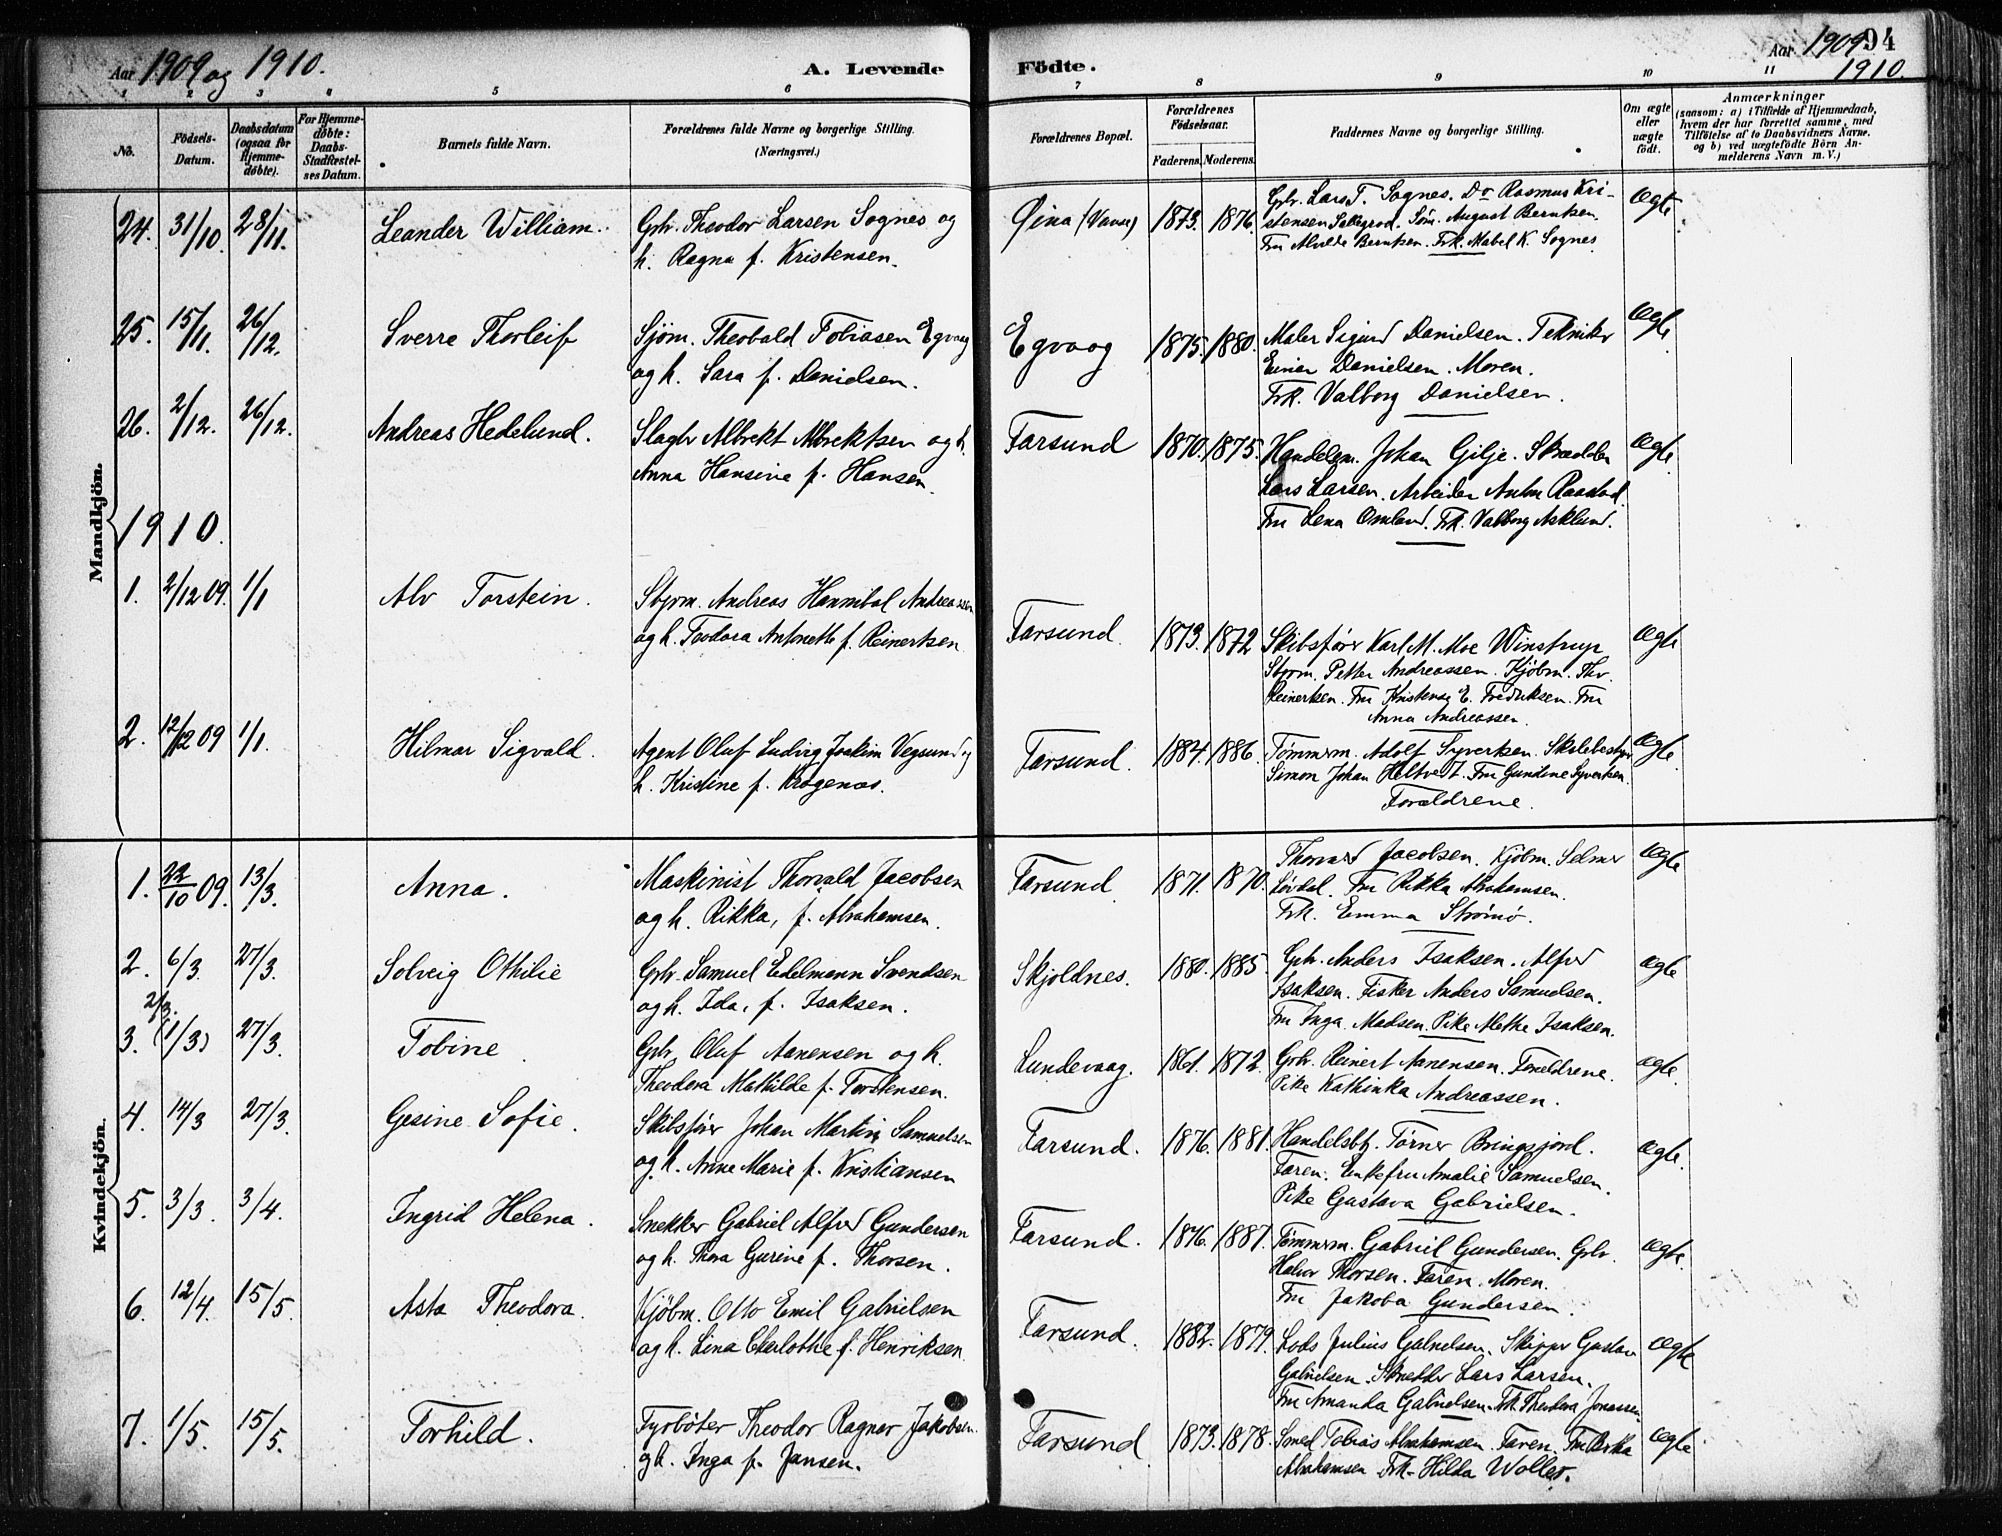 Aar 1909 og 1910.
A. Levende Födte.
Aar 1909 94
1910.
1 2 3 4 5 6 7 8 9 10 11
No.
Födsels-Datum.
Daabsdatum (ogsaa for Hjemme-döbte).
For Hjemme-döbte: Daabs-Stadfæstel-ses Datum.
Barnets fulde Navn.
Forældrenes fulde Navne og borgerlige Stilling.
(Næringsvei.)
Forældrenes Bopæl.
Forældrenes Födselsaar.
Faderens. Moderens.
Faddernes Navne og borgerlige Stilling.
Om ægte eller uægte födt.
Anmærkninger
(saasom: a) i Tilfælde af Hjemmedaab, hvem der har forrettet samme, med Tilföielse af to Daabsvidners Navne. og b) ved uægtefödte Börn An-melderens Navn m. V.)
Mandkjön.
24. 31/10. 28/11. Leander William. Gbr. Theodor Larsen Sognes og
h. Ragna f. Kristensen.
Øina (Vanse) 1873. 1876. Gbr. Lars T. Sognes. Do Rasmus Kri-
stensen Sellegrod. Søm. August Berntsen.
Fru Alvilde Berntsen. Frk. Mabel K. Sognes
Ægte
25. 15/11. 26/12. Sverre Thorleif Sjøm. Theobald Tobiasen Egvaag
og h. Sara f. Danielsen.
Egvaag 1875. 1880. Maler Sigurd Danielsen. Tekniker
Einer Danielsen. Moren.
Frk. Valborg Danielsen.
Ægte
26. 2/12. 26/12. Andreas Hedelund. Slagtr Albrekt Albrektsen og h.
Anna Hansine f. Hansen.
Farsund 1870. 1875. Handelsm. Johan Gilje. Skrædder
Lars Larsen. Arbeider Anton Raastad.
Fru Lena Omland. Frk. Valborg Asklund.
Ægte
1910.
1. 2/12 09. 1/1 Alv Torstein. Styrm. Andreas Hannibal Andreassen
og h. Teodora Antonette f. Reinertsen
Farsund. 1873. 1872 Skibsfører Karl M. Moe Winstrup
Styrm. Petter Andreassen. Kjøbm. Thv.
Reinertsen. Fru Kristense E. Fredriksen. Fru
Anna Andreassen.
Ægte
2. 12/12 09 1/1. Hilmar Sigvald. Agent Oluf Ludvig Joakim Vegsund og
h. Kristine f. Kragenas.
Farsund. 1884. 1886. Tømmerm. Adolf Syvertsen. Skolebestyr
Simon Johan Heltvedt. Fru Gundine Syvertsen.
Forældrene.
Ægte
Kvindekjön.
1. 22/10 09. 13/3. Anna. Maskinist Thorvald Jacobsen
og h. Rikka, f. Abrahamsen.
Farsund. 1871. 1870. Thorvard Jacobsen. Kjøbm. Selmer
Løvdal. Fru Rikka Abrahamsen.
Frk. Emma Strømø.
Ægte
2. 6/3. 27/3. Solveig Othilie Gbr. Samuel Edelmann Svendsen
og h. Ida, f. Isaksen.
Skjoldnes. 1880. 1885. Gbr. Anders Isaksen. Alfred
Isaksen. Fisker Anders Samuelsen.
Fru Inga Madsen. Pike Methe Isaksen.
Ægte
2/3.
3. (1/3) 27/3. Tobine. Gbr. Oluf Aanensen og h.
Theodora Mathilde f. Torstensen.
Lundevaag. 1861. 1872. Gbr. Reinert Aanensen. Forældrene.
Pike Kathinka Andreassen.
Ægte.
4. 14/3 27/3. Gesine Sofie. Skibsfører Johan Martin Samuelsen
og h. Anne Marie f. Kristiansen
Farsund. 1876. 1881. Handelsbf. Tørner Bringsjord.
Faren. Enkefru Amalie Samuelsen.
Pike Gustava Gabrielsen.
Ægte.
5. 3/3. 3/4. Ingrid Helena. Snekker Gabriel Alfred Gundersen
og h. Thora Gurine f. Thorsen.
Farsund. 1876. 1881. Tømmerm. Gabriel Gundersen. Gbr.
Halvor Thorsen. Faren. Moren.
Fru Jakoba Gundersen.
Ægte.
6. 12/4. 15/5. Asta Theodora. Kjøbm. Otto Emil Gabrielsen
og h. Lina Charlothe f. Henriksen.
Farsund. 1882. 1879. Lods Julius Gabrielsen. Skipper Gustav
Gabrielsen. Skredder Lars Larsen.
Fru Amanda Gabrielsen. Frk. Theodora Jonassen.
Ægte
7. 1/5. 15/5. Torhild. Fyrbøter Theodor Ragnar Jakobsen
og h. Inga f. Jansen.
Farsund 1873. 1878. Smed Tobias Abrahamsen. Faren. Fru Rikka
Abrahamsen. Frk. Hilda Woller.
Ægte